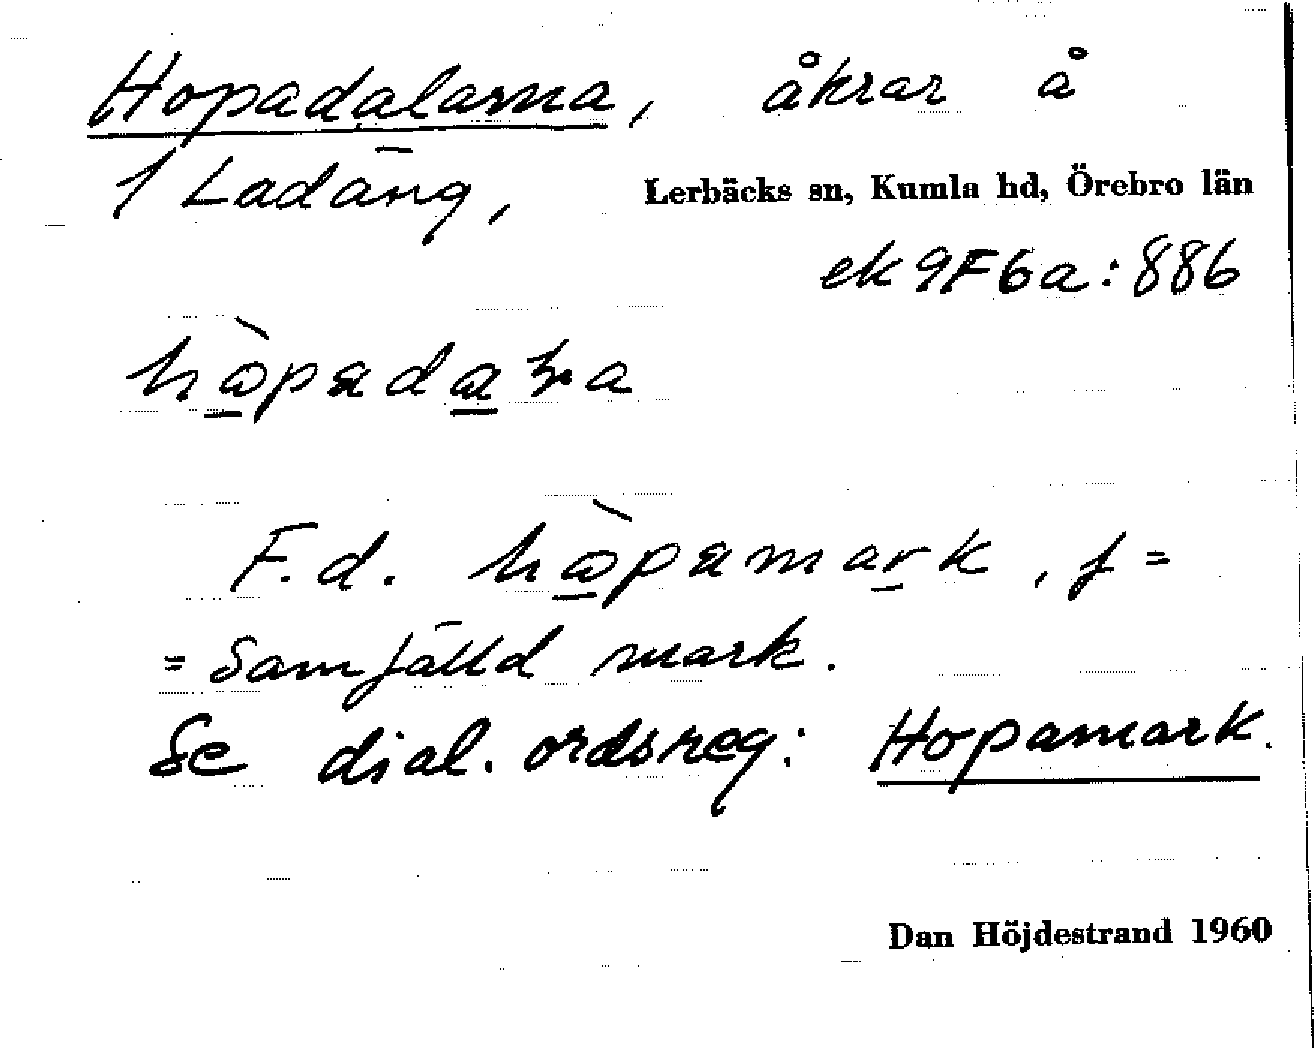 Hopadalarna, åkrar å
1 Ladäng, Lerbäcks sn, Kumla hd, Örebro län
ek 9F6a:886
F.d. hòpamark, f =
= Samfälld mark.
Se dial. ordsreg: Hopamark.
Dan Höjdestrand 1960